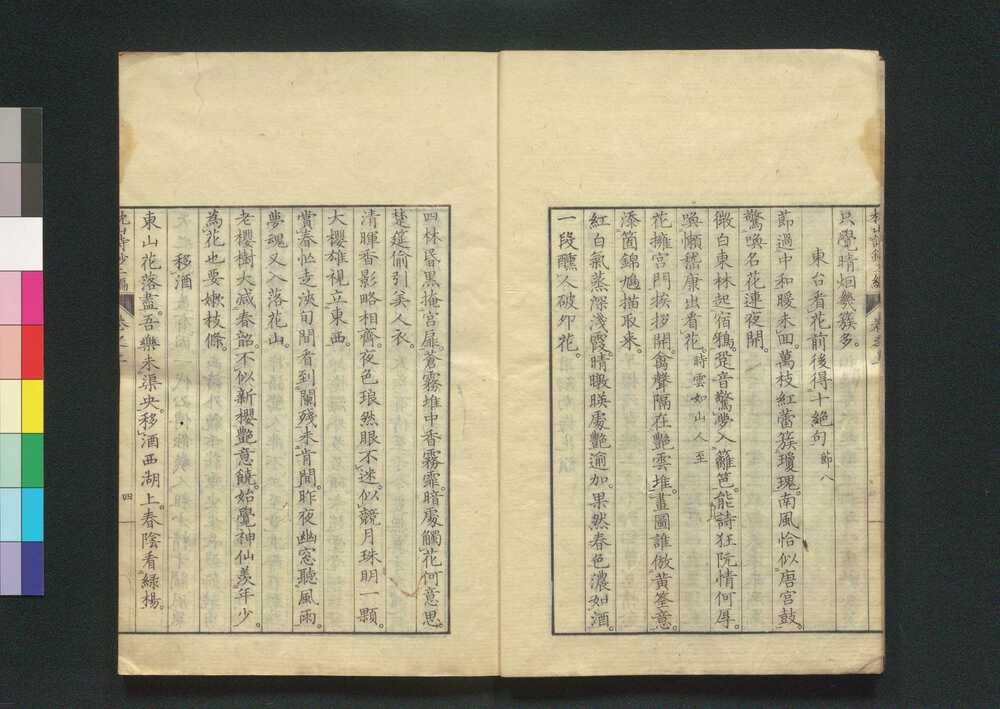 只覺晴烟幾簇多。
東台看花前後得十絶句 節八
節過中和暖未回。萬枝紅蕾簇瓊瑰。南風恰似唐宮鼓。
驚喚名花連夜開。
微白東林起宿鴉。跫音驚夢入籬笆。能詩狂阮情何厚。
喚懶嵇康出看花。時雲如山人至
花擁宮門挨拶開。禽聲隔在艷雲堆。畫圖誰倣黄筌意。
漆箇錦鳩描取來。
紅白氣蒸深淺霞。晴暾映處艷逾加。果然春色濃如酒。
一段醺人破夘花。
四林昏黒掩宮扉。蒼霧堆中香霧霏。暗處觸花何意思。
楚筵偷引美人衣。
清暉香影略相齊。夜色琅然眼不迷。似競月珠明一顆。
大櫻雄視立東西。
賞春忙走浹旬間。看到闌殘未肯閒。昨夜幽窓聽風雨。
夢魂又入落花山。
老櫻樹大减春韶。不似新櫻艷意饒。始覺神仙羨年少。
為花也要嫩枝條。
移酒
東山花落盡。吾樂未渠央。移酒西湖上。春陰看緑楊。
四